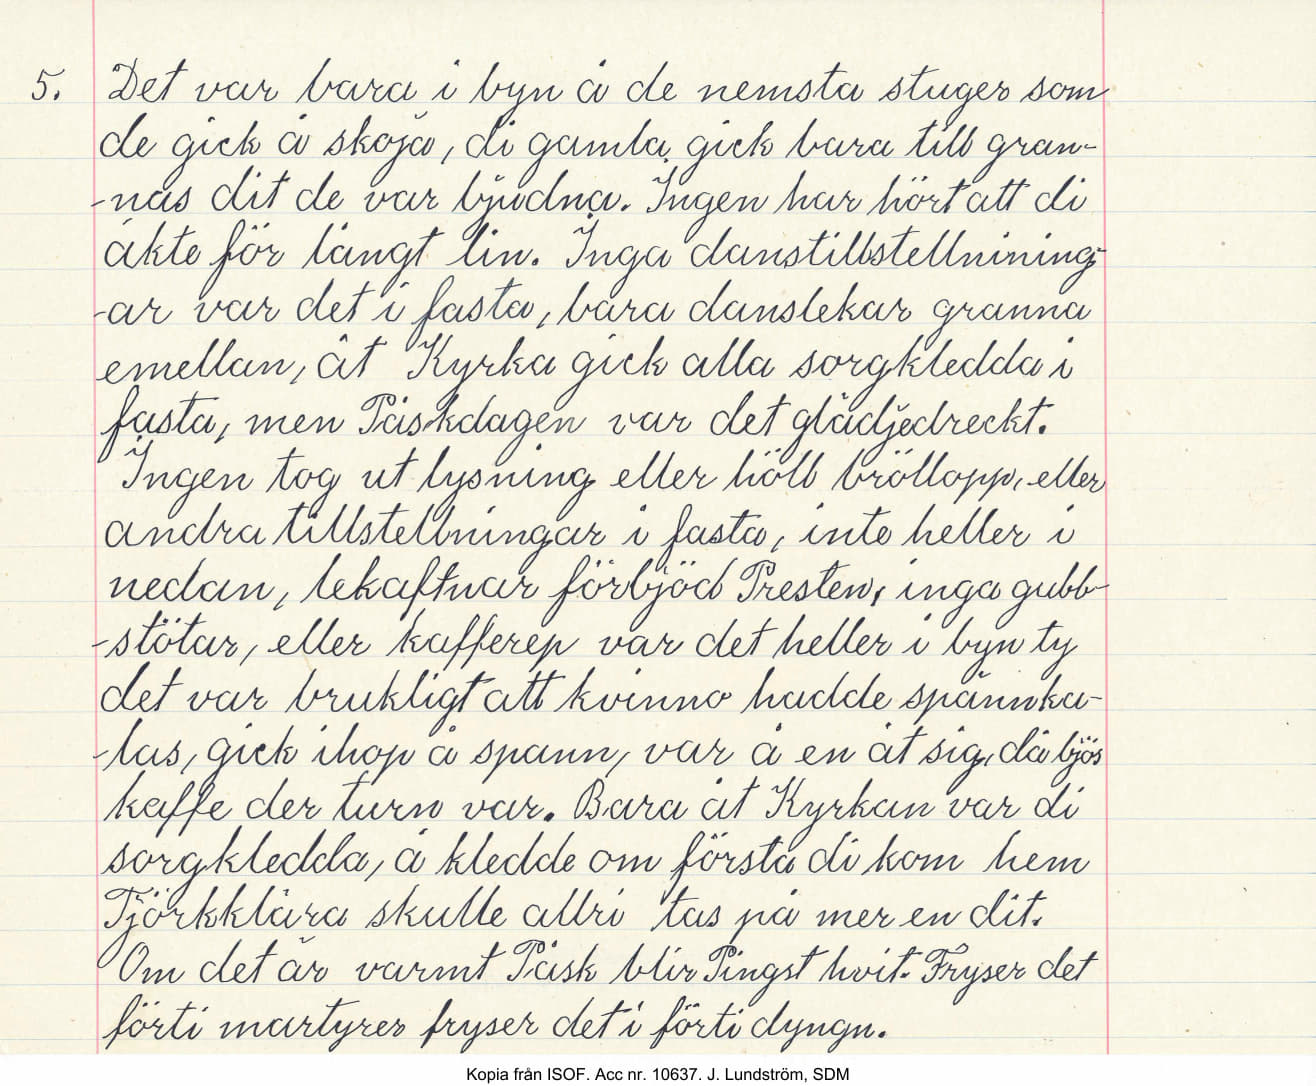 5. Det var bara i byn å de nemsta stuger som
de gick å skoja, di gamla gick bara till gran-
-nas dit de var bjudna. Ingen har hört att di
åkte för långt lin. Inga danstillstellnining-
-ar var det i fasta, bara danslekar granna
emellan, åt Kyrka gick alla sorgkledda i
fasta, men Påskdagen var det glädjedreckt.
Ingen tog ut lysning eller höll bröllopp, eller
andra tillstellningar i fasta, inte heller i
nedan, lekaftnar förbjöd Presten, inga gubb-
-stötar, eller kafferep var det heller i byn ty
det var brukligt att kvinno hadde spånnka-
-las, gick ihop å spann, var å en åt sig, då bjös
kaffe der turn var. Bara åt Kyrkan var di
sorgkledda, å kledde om första di kom hem
Tjörkklära skulle allri tas på mer en dit.
Om det är varmt Påsk blir Pingst hvit. Fryser det
förti martyrer fryser det i förti dyngn.
Kopia från ISOF. Acc nr. 10637. J. Lundström, SDM